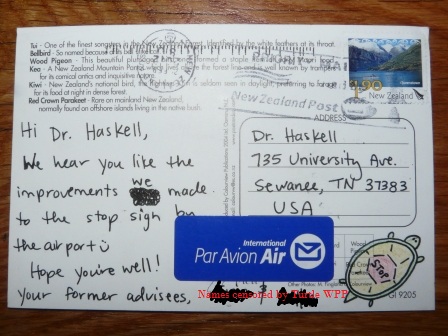 Tui - One of the finest songsters in the
identified by the white feathers at its throat.
Bellbird - So named because of its bell
Wood Pigeon - This beautiful plump bird
formed a staple
food.
Kea - A New Zealand Mountain Parrot which lives
the forest line and is well known by trampers
for its comical antics and inquisitive nature.
Kiwi - New Zealand's national bird, the flightless
is seldom seen in daylight, preferring to forage
for food at night in dense forest.
Red Crown Parakeet - Rare on mainland New Zealand,
normally found on offshore islands living in the native bush.
New Zealand
New Zealand Post
ADDRESS
Hi Dr. Haskell,
We hear you like the
improvements we made
to the stop sign by
the airport
Hope you're well!
Your former advisees,
Dr. Haskell
735 University Ave.
Sewanee, TN 37383
USA
International
Par Avion Air
STOP!
Names censored by Turtle WPP
GI 9205